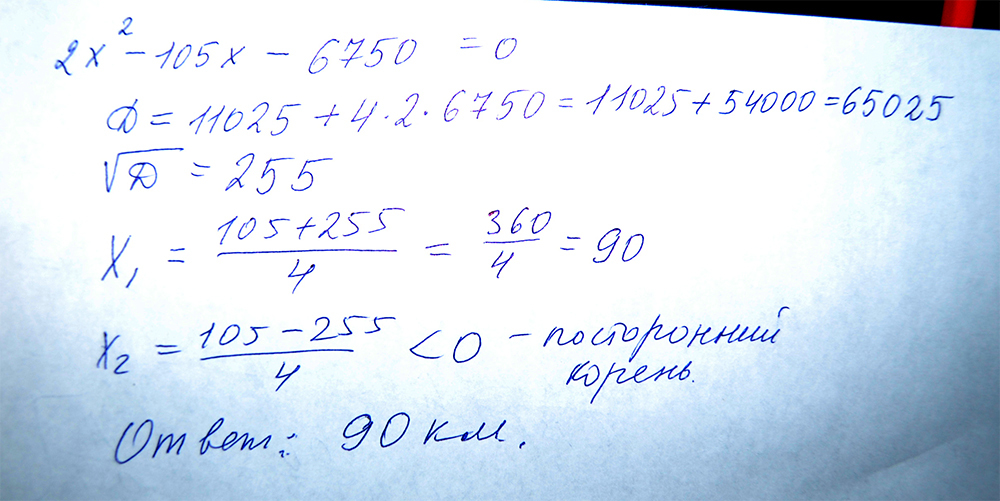 2x² - 105x - 6750 = 0
Д = 11025 + 4·2·6750 = 11025 + 54000 = 65025
√Д = 255
X₁ = (105+255)/4 = 360/4 = 90
X₂ = (105-255)/4 < 0 - посторонний
корень.
Ответ: 90 км.